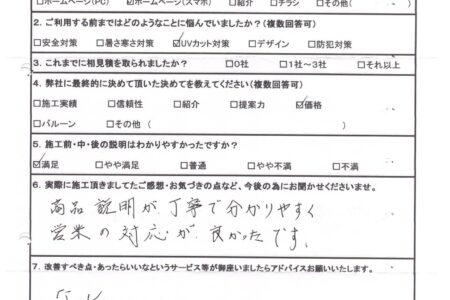 □ホームページ(PC) ☑ホームページ(スマホ) □紹介 □チラシ □その他(
2. ご利用する前まではどのようなことに悩んでいましたか?(複数回答可)
□安全対策 □暑さ寒さ対策 ☑UVカット対策 □デザイン □防犯対策
3. これまでに相見積を取られましたか? □0社 □1社~3社 □それ以上
4. 弊社に最終的に決めて頂いた決めてを教えてください(複数回答可)
□施工実績 □信頼性 □紹介 □提案力 ☑価格
□バルーン □その他 ( )
5. 施工前・中・後の説明はわかりやすかったですか?
☑満足 □やや満足 □普通 □やや不満 □不満
6. 実際に施工頂きましてたご感想・お気づきの点など、今後の為にお聞かせくださいませ。
商品説明が丁寧で分かりやすく
営業の対応が良かったです。
7. 改善すべき点・あったらいいなというサービス等が御座いましたらアドバイスお願いいたします。